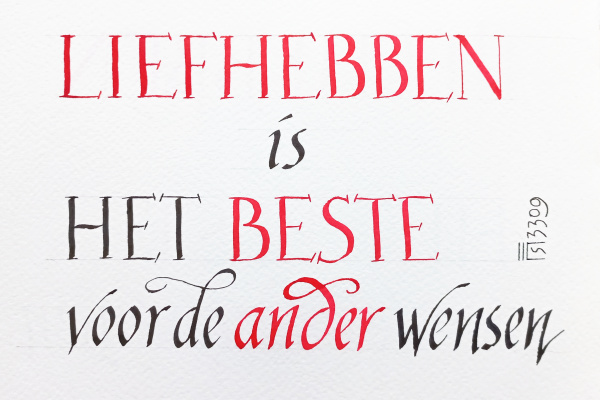 LIEFHEBBEN
is
HET BESTE
voor de ander wensen